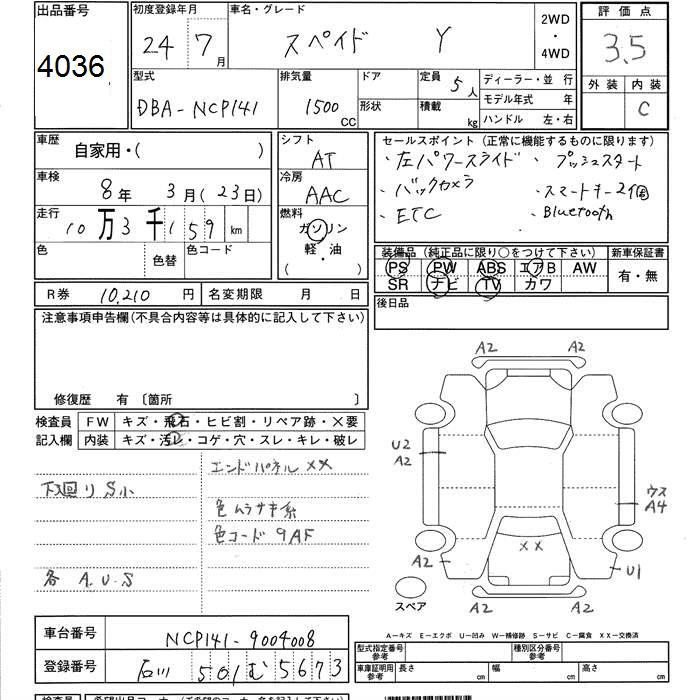 出品番号
4036
初度登録年月
24 7月
車名・グレード
スペイド Y
2WD
・
4WD
評価点
3.5
外装 内装
C
型式
DBA-NCP141
排気量
1500 CC
ドア
形状
定員 5人
積載 kg
ディーラー・並 行
モデル年式 年
ハンドル 左・右
車歴
自家用・( )
シフト
AT
車検
8年 3月(23日)
冷房
AAC
走行
10万3千159 km
燃料
ガソリン
軽・油
( )
色
色替
色コード
セールスポイント (正常に機能するものに限ります)
・左パワースライド ・プッシュスタート
・バックカメラ ・スマートキー2個
・ETC ・Bluetooth
装備品 (純正品に限り○をつけて下さい)
PS PW ABS エアB AW
SR ナビ TV カワ
新車保証書
有・無
R券 10,210 円
名変期限 月 日
後日品
注意事項申告欄(不具合内容等は具体的に記入して下さい)
修復歴 有 〔箇所 〕
検査員
記入欄
FW キズ・飛石・ヒビ割・リペア跡・×要
内装 キズ・汚レ・コゲ・穴・スレ・キレ・破レ
下廻りS小
各 A.U.S
エンドパネル ××
色 ムラサキ系
色コード 9AF
A2 A2
U2
A2
ウス
A4
××
A2
U1
A2 A2
スペア
A-キズ E-エクボ U-凹み W-補修跡 S-サビ C-腐食 XX-交換済
車台番号
NCP141-9004008
登録番号
石川 501 む 5673
型式指定番号
参考
種別区分番号
参考
車庫証明用
参考
長さ cm 幅 cm 高さ cm